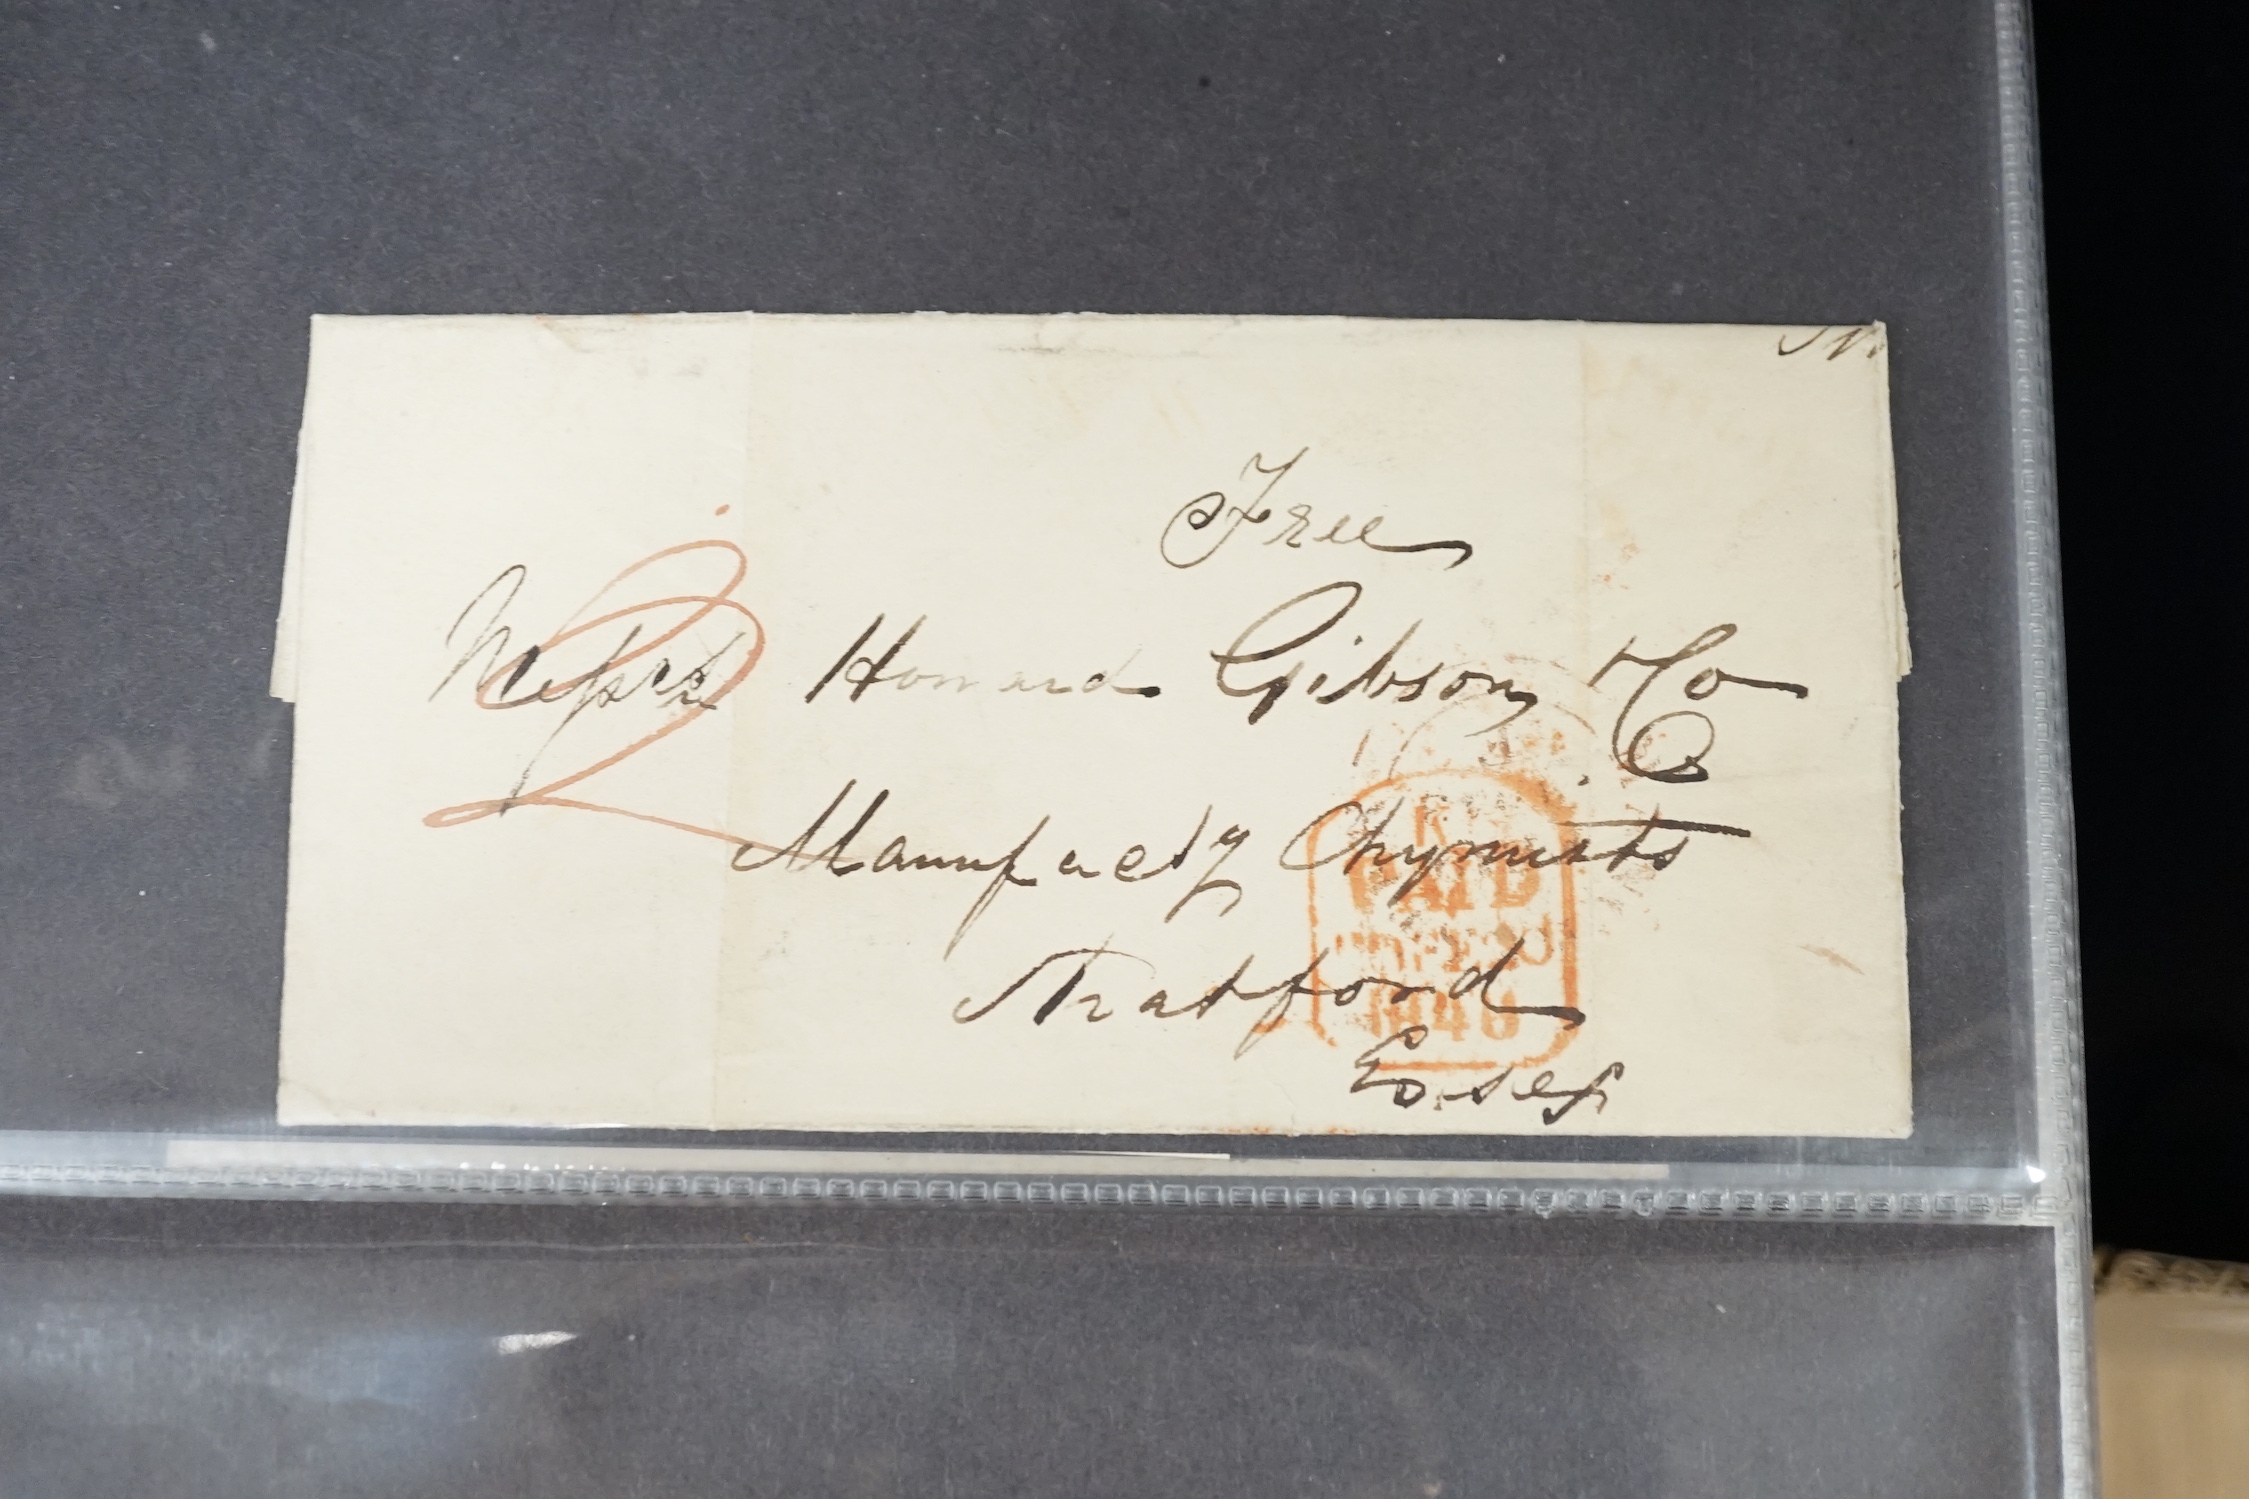 Free
Messrs Howard Gibson & Co
2
Manufactg Chymists
PAID
1846
Stratford
Essex